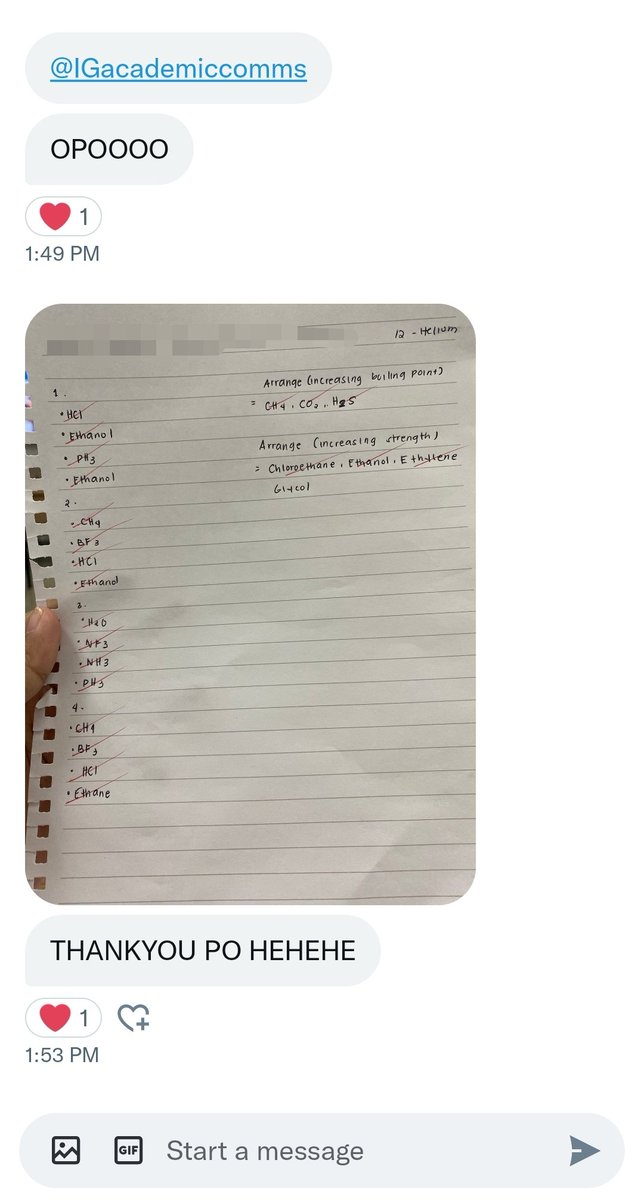 @IGacademiccomms
OPOOOO
❤️ 1
1:49 PM
12 - Helium
1.
• HCl
• Ethanol
• PH3
• Ethanol
2.
• CH4
• BF3
• HCl
• Ethanol
3.
• H2O
• NF3
• NH3
• PH3
4.
• CH4
• BF3
• HCl
• Ethane
Arrange (increasing boiling point)
= CH4, CO2, H2S
Arrange (increasing strength)
= Chloroethane, Ethanol, Ethylene
Glycol
THANKYOU PO HEHEHE
❤️ 1
1:53 PM
GIF
Start a message